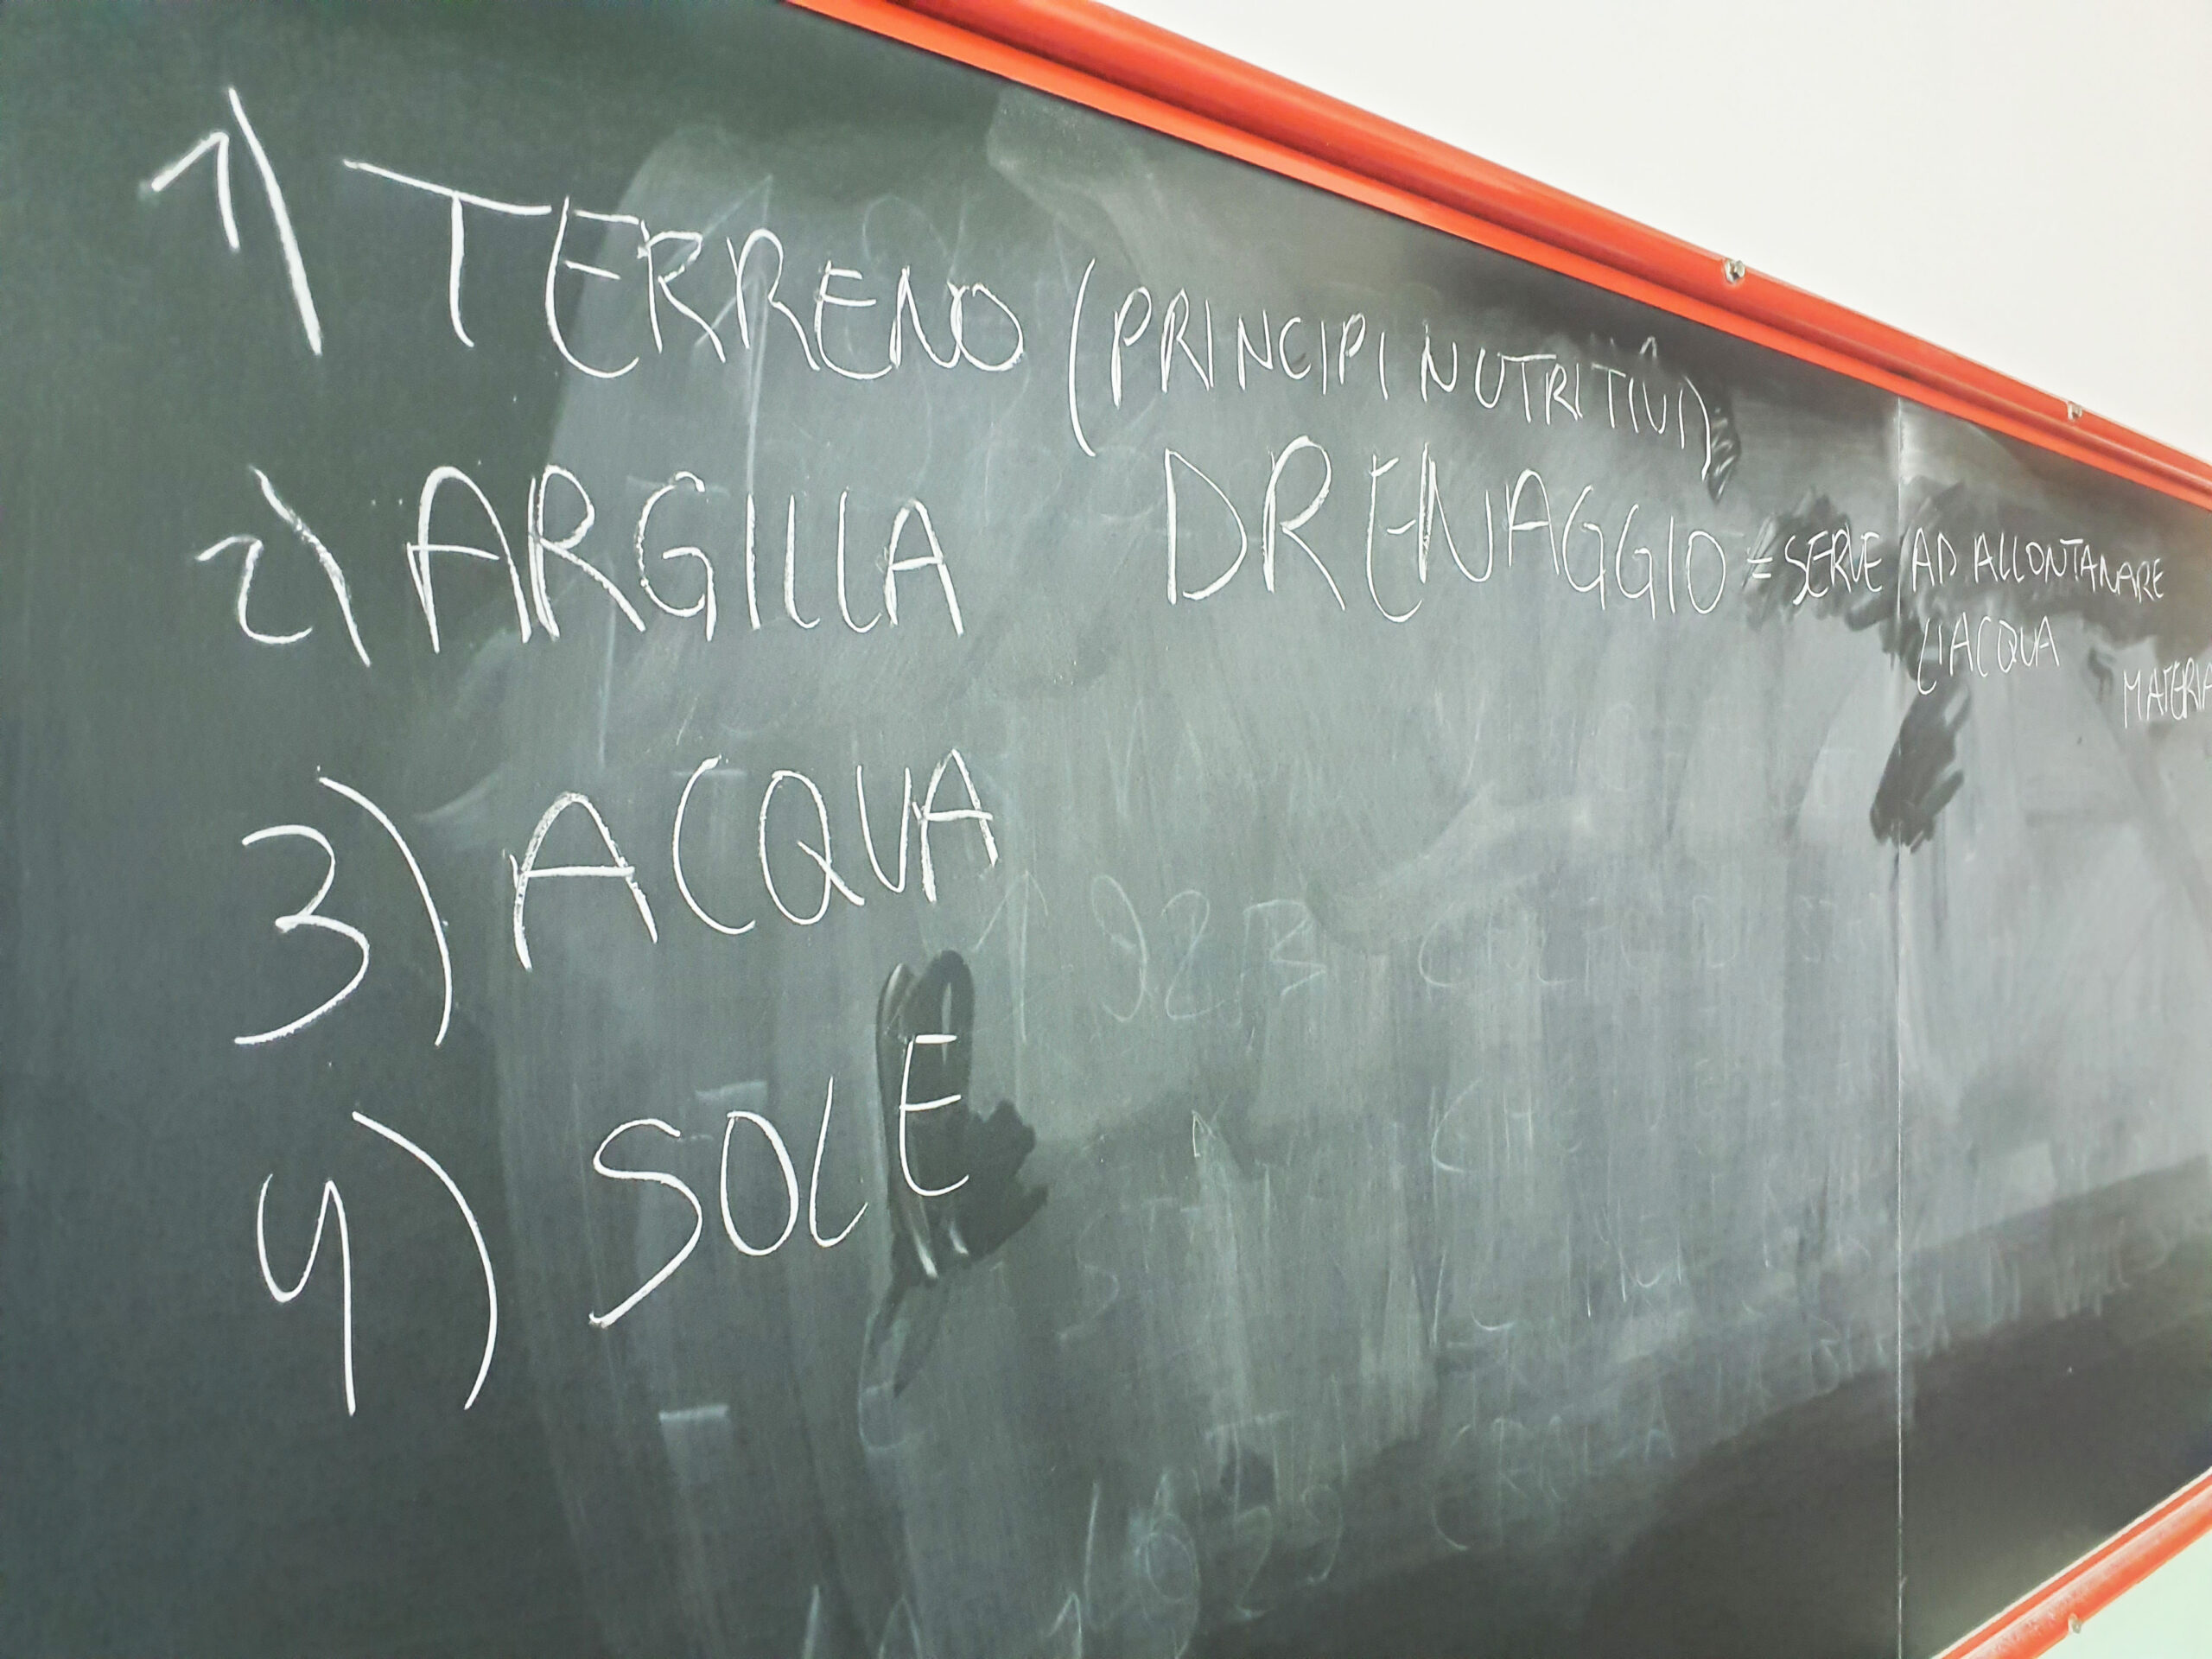 1) TERRENO (PRINCIPI NUTRITIVI)
2) ARGILLA DRENAGGIO = SERVE AD ALLONTANARE
L'ACQUA
MATERIA
3) ACQUA
4) SOLE